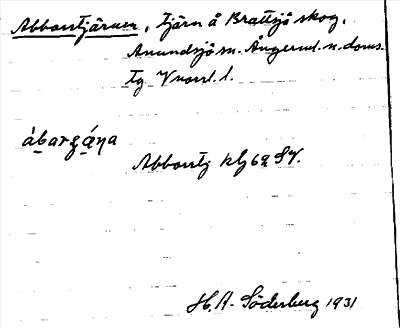 Abborrtjärnen, tjärn å Brattsjö skog,
Anundsjö sn. Ångerml. n. doms.
tg Vnorrl. l.
àbargá̱ŋa
Abborrtj klj 69 SV.
H. A. Söderberg 1931